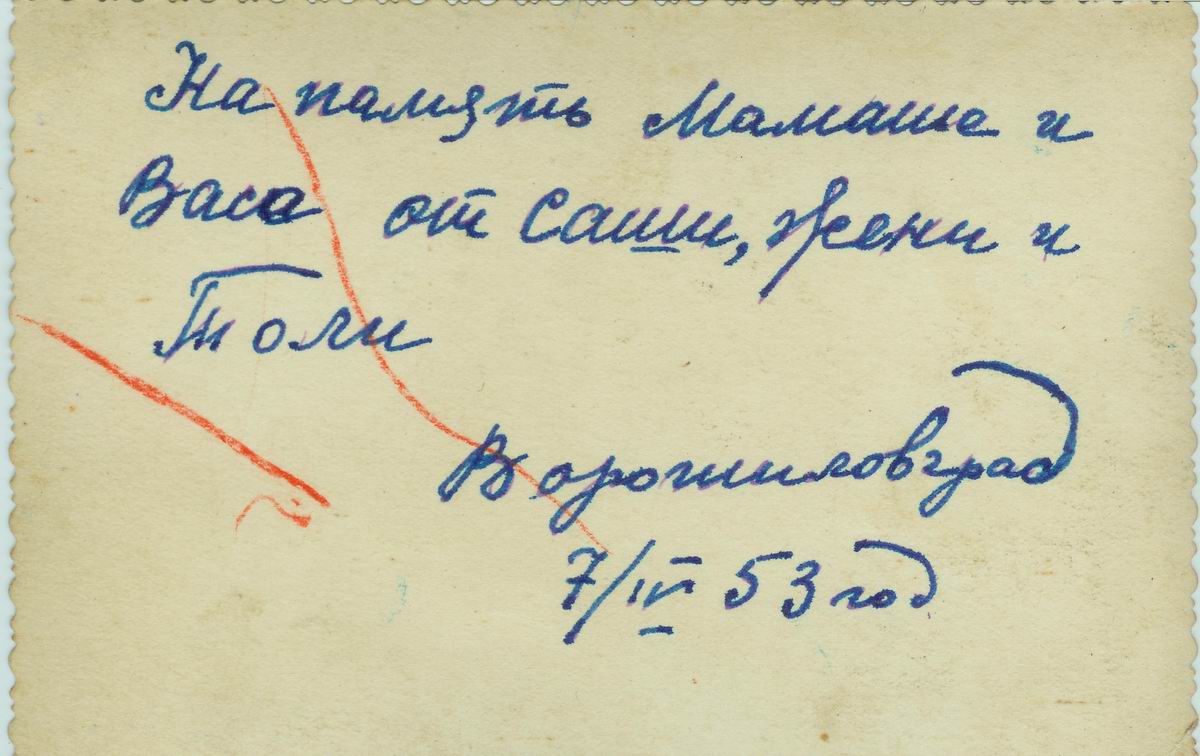 На память Мамаше и
Васе от Саши, Жени и
Толи
Ворошиловград
7/IV 53 год